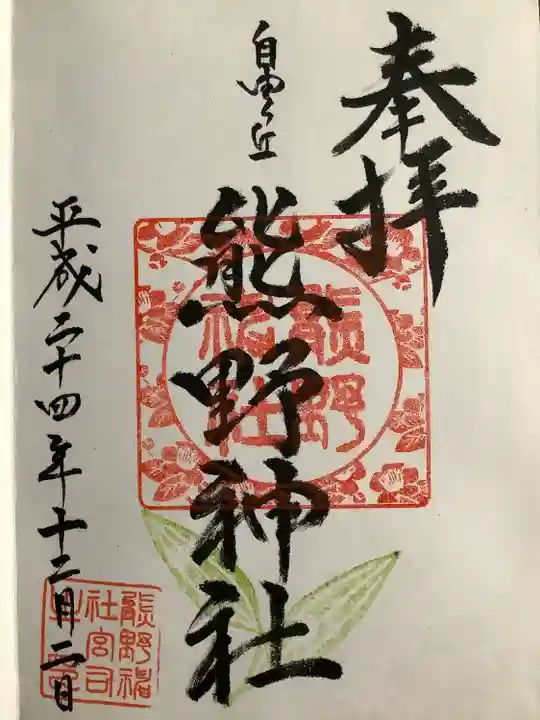 奉拝
自由ヶ丘
熊野神社
熊野神社
平成二十四年十二月二日
熊野神
社宮司
之印